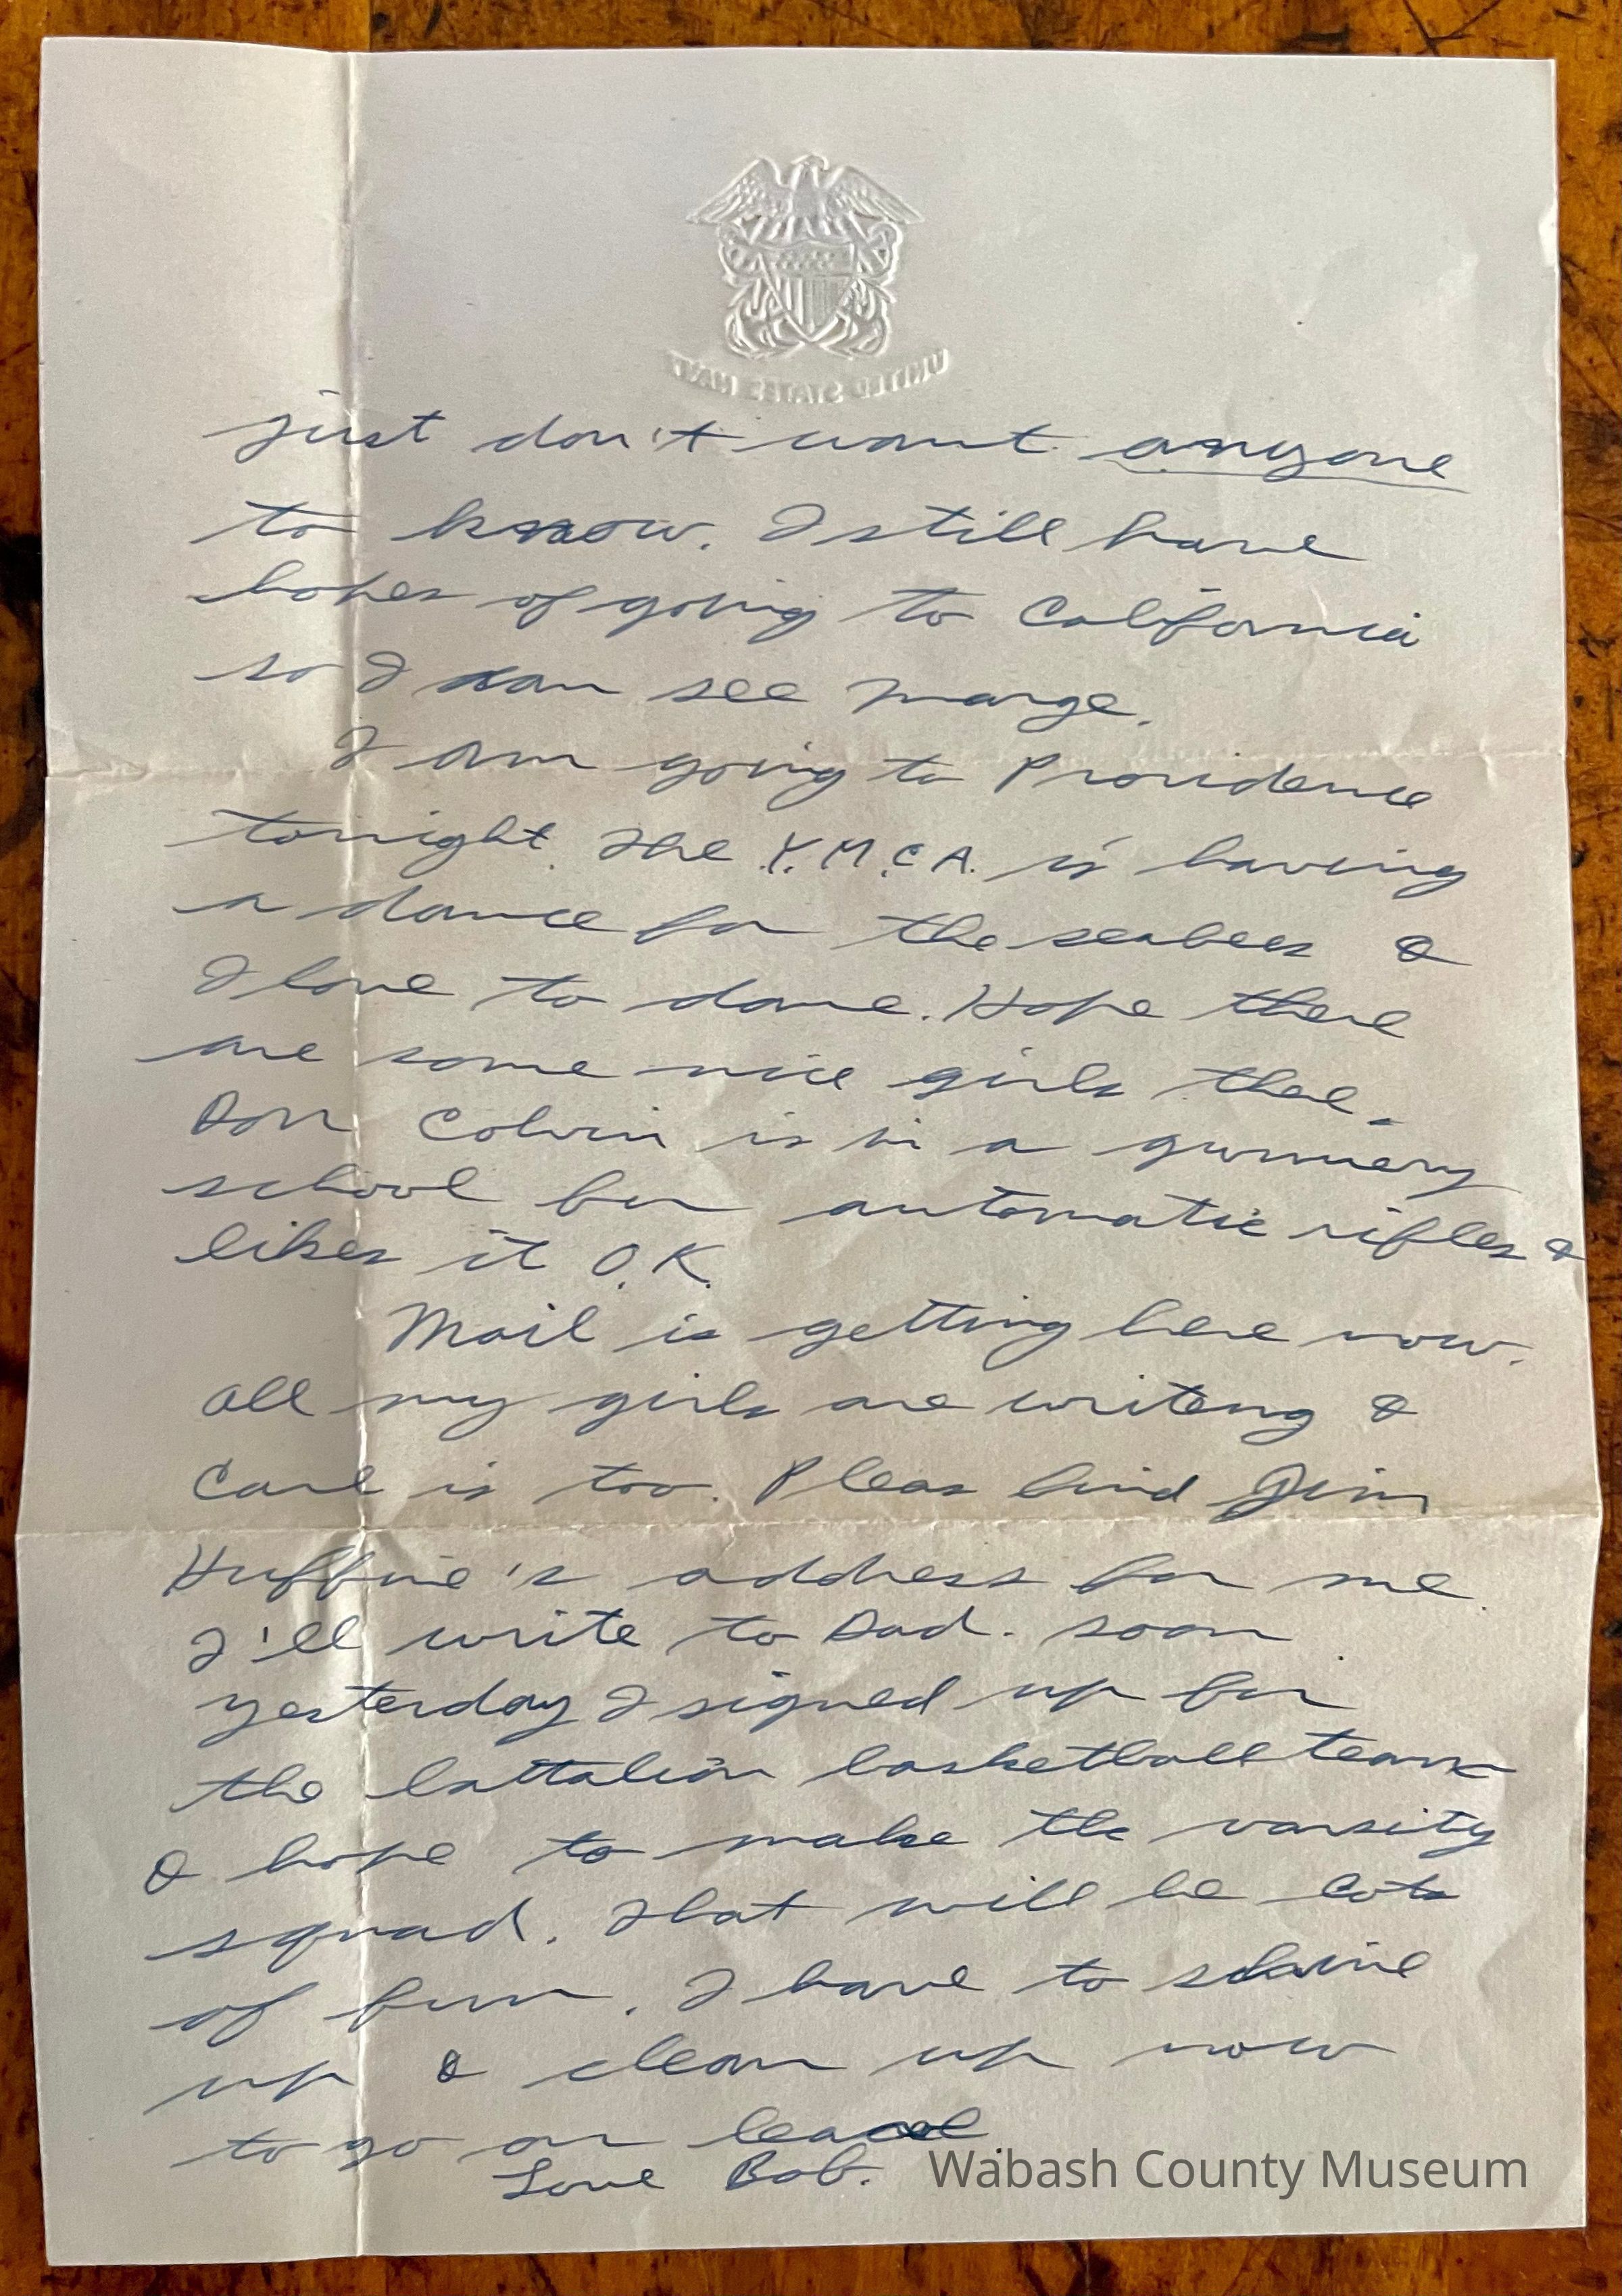 UNITED STATES NAVY
just don't want anyone
to know. I still have
hopes of going to California
so I can see Marge.
I am going to Providence
tonight. The Y.M.C.A. is having
a dance for the seabees &
I love to dance. Hope there
are some nice girls there.
Don Colvin is in a gunnery
school for automatic rifles &
likes it O.K.
Mail is getting here now.
All my girls are writeng &
Carl is too. Pleas find Jim
Huffine's address for me.
I'll write to Dad. soon
yesterday I signed up for
the battalion basketball team
& hope to make the varsity
squad. That will be lots
of fun. I have to shine
up & clean up now
to go on leave
Love Bob.
Wabash County Museum